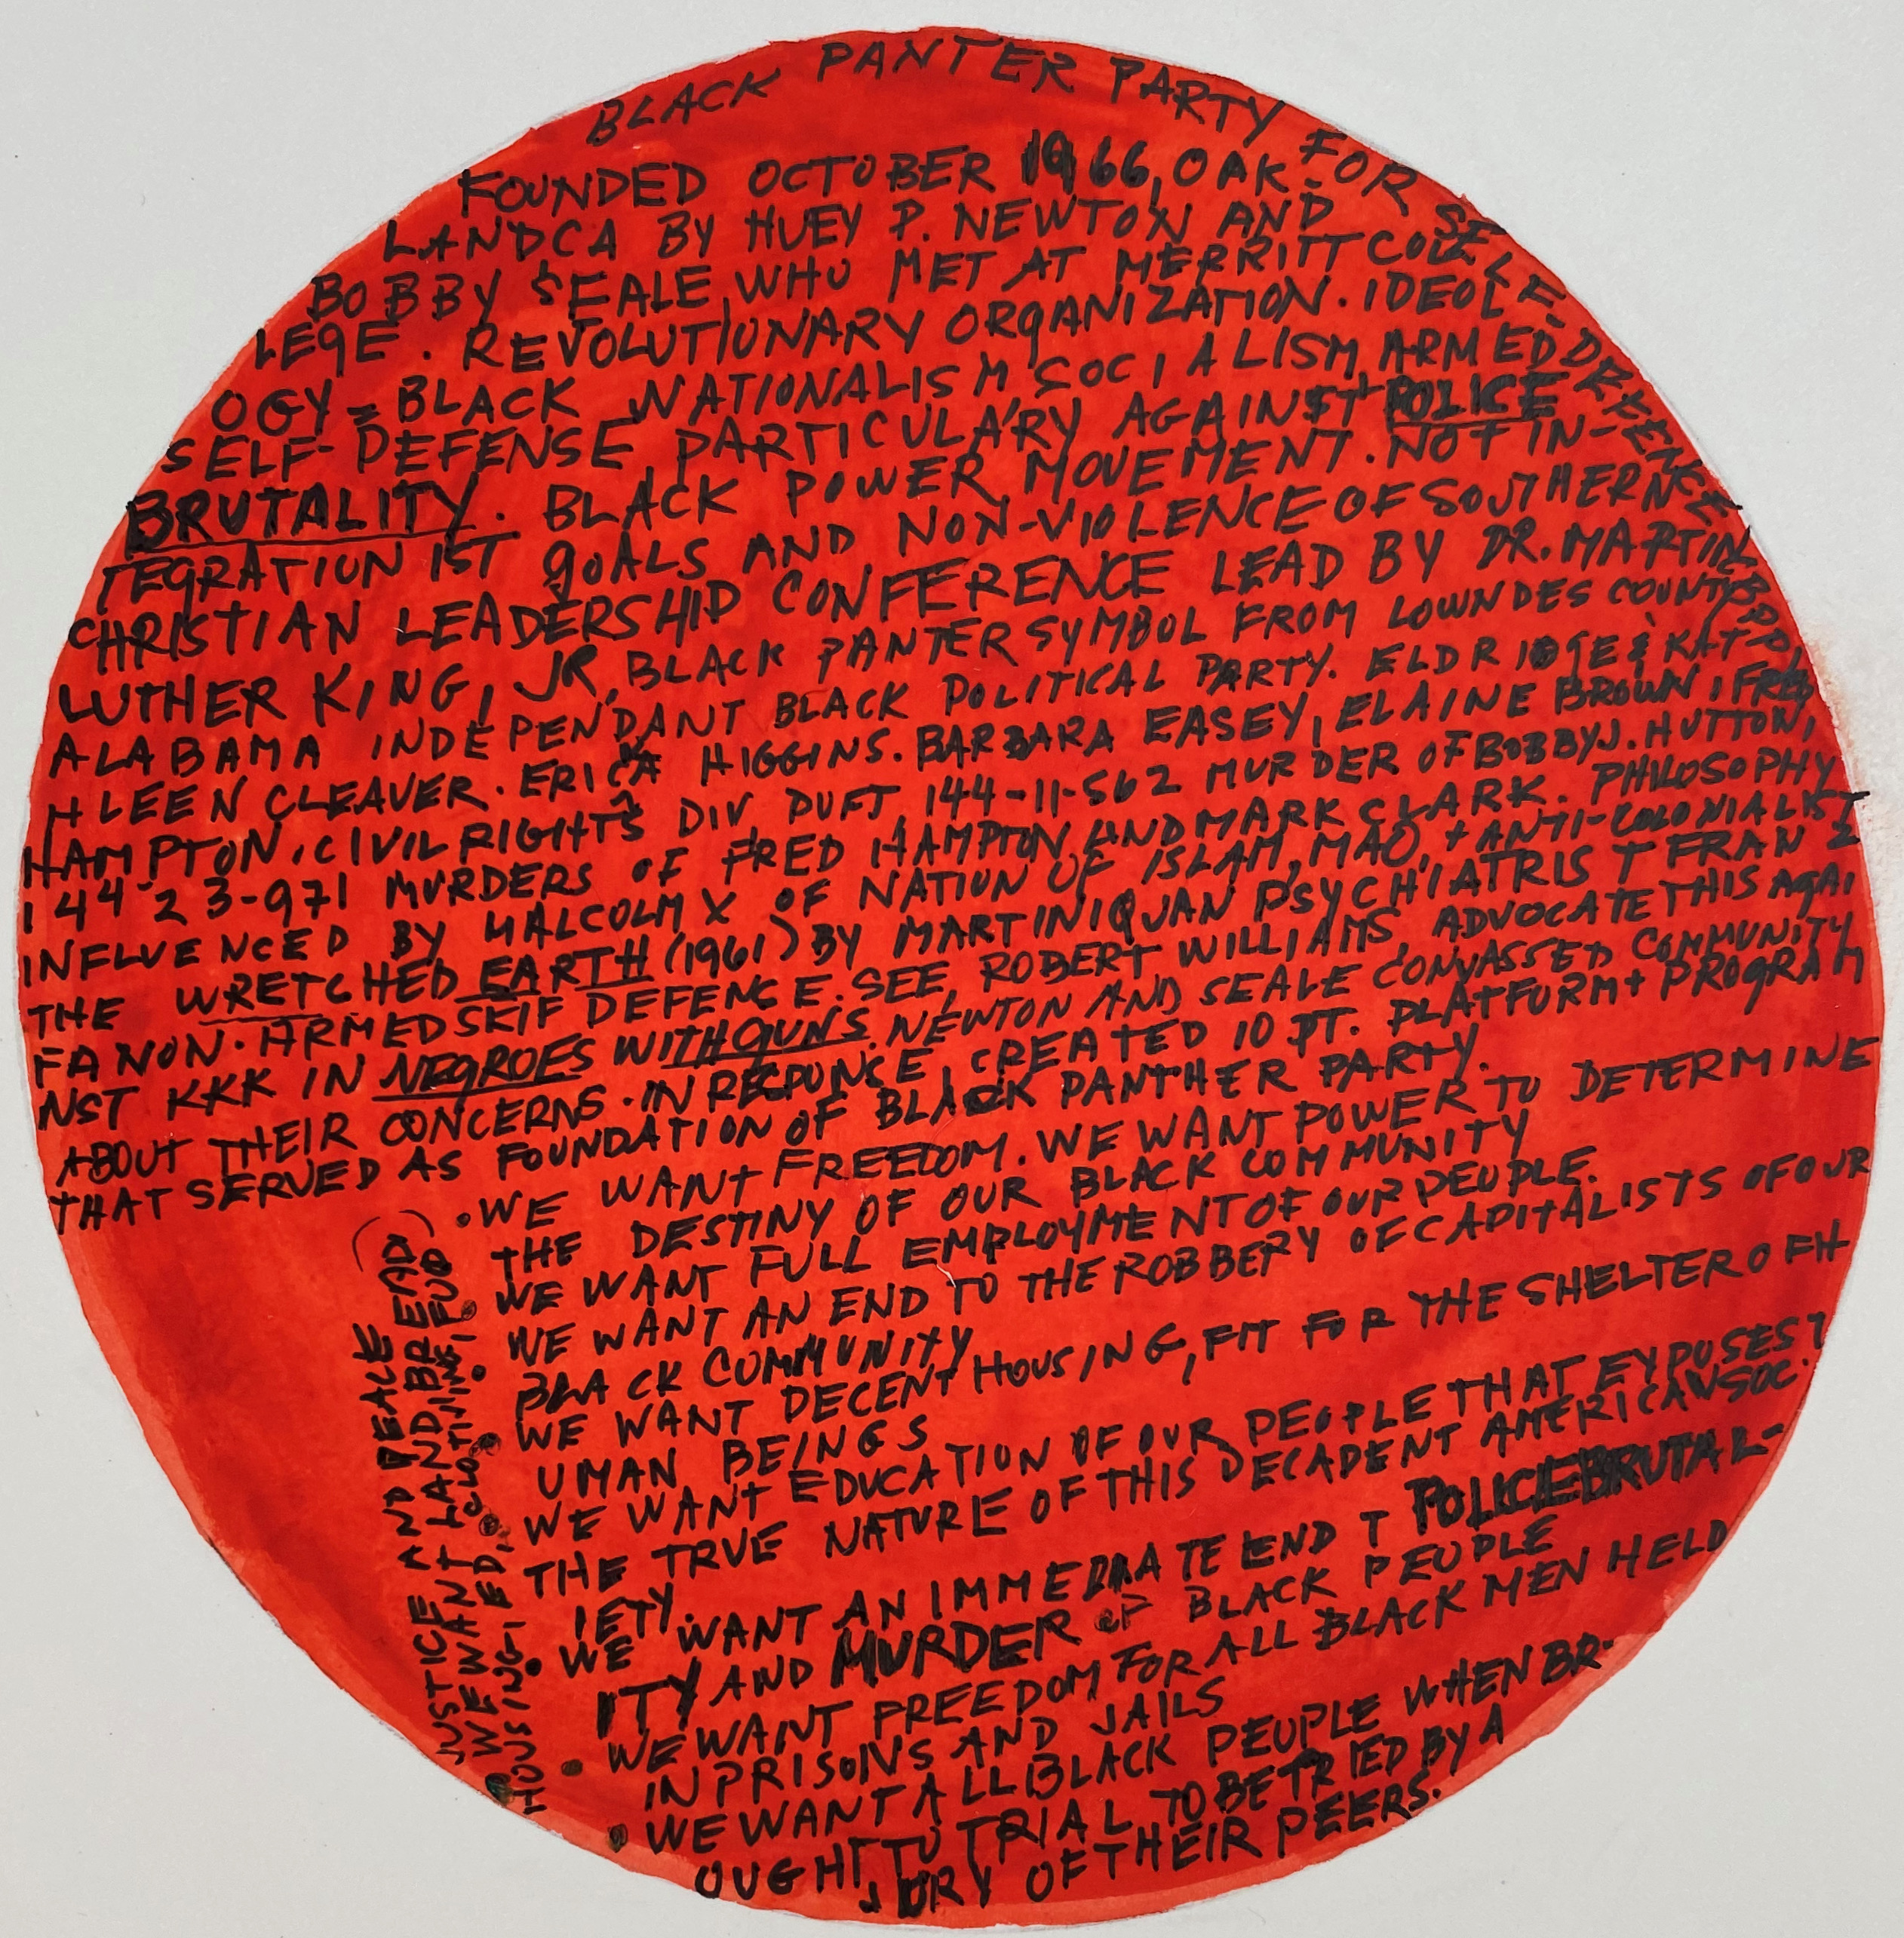 BLACK PANTER PARTY FOR SELF-DEFENCE
FOUNDED OCTOBER 1966, OAK-
LANDCA BY HUEY P. NEWTON AND
BOBBY SEALE, WHO MET AT MERRITT COL-
LEGE. REVOLUTIONARY ORGANIZATION. IDEOL
OGY = BLACK NATIONALISM, SOCIALISM ARMED
SELF-DEFENSE, PARTICULARY AGAINST POLICE
BRUTALITY. BLACK POWER MOVEMENT. NOT IN-
TEGRATIONIST GOALS AND NON-VIOLENCE OF SOUTHERN
CHRISTIAN LEADERSHIP CONFERENCE LEAD BY DR. MARTIN
LUTHER KING, JR. BLACK PANTER SYMBOL FROM LOWNDES COUNTY
ALABAMA INDEPENDANT BLACK POLITICAL PARTY. ELDRIDGE & KAT
HLEEN CLEAVER. ERICA HIGGINS. BARBARA EASEY, ELAINE BROWN, FRED
HAMPTON, CIVIL RIGHTS DIV DUFT, 144-11-562 MURDER OF BOBBY J. HUTTON,
144-23-971 MURDERS OF FRED HAMPTON AND MARK CLARK. PHILOSOPHY
INFLUENCED BY MALCOLM X OF NATION OF ISLAM, MAO, + ANTI-COLONIALIST
THE WRETCHED EARTH (1961) BY MARTINIQUAN PSYCHIATRIST FRANZ
FANON. ARMED SKIF DEFENCE. SEE, ROBERT WILLIAMS, ADVOCATE THIS AGAI
NST KKK IN NEGROES WITH GUNS. NEWTON AND SEALE CONVASSED COMMUNITY
ABOUT THEIR CONCERNS. IN RESPONCE, CREATED 10 PT. PLATFORM + PROGRAM
THAT SERVED AS FOUNDATION OF BLACK PANTHER PARTY.
• WE WANT FREEDOM. WE WANT POWER TO DETERMINE
THE DESTINY OF OUR BLACK COMMUNITY
WE WANT FULL EMPLOYMENT OF OUR PEOPLE.
• WE WANT AN END TO THE ROBBERY OF CAPITALISTS OF OUR
BLACK COMMUNITY
• WE WANT DECENT HOUSING, FIT FOR THE SHELTER OF H
UMAN BEINGS
• WE WANT EDUCATION OF OUR PEOPLE THAT EXPOSES T
THE TRUE NATURE OF THIS DECADENT AMERICAN SOC.
IETY.
• WE WANT AN IMMEDIATE END T POLICE BRUTAL-
ITY AND MURDER OF BLACK PEOPLE
• WE WANT FREEDOM FOR ALL BLACK MEN HELD
IN PRISONS AND JAILS
• WE WANT ALL BLACK PEOPLE WHEN BR-
OUGHT TO TRIAL TO BE TRIED BY A
JURY OF THEIR PEERS.
• WE WANT LAND, BREAD,
HOUSING, ED., CLOTHING,
JUSTICE AND PEACE